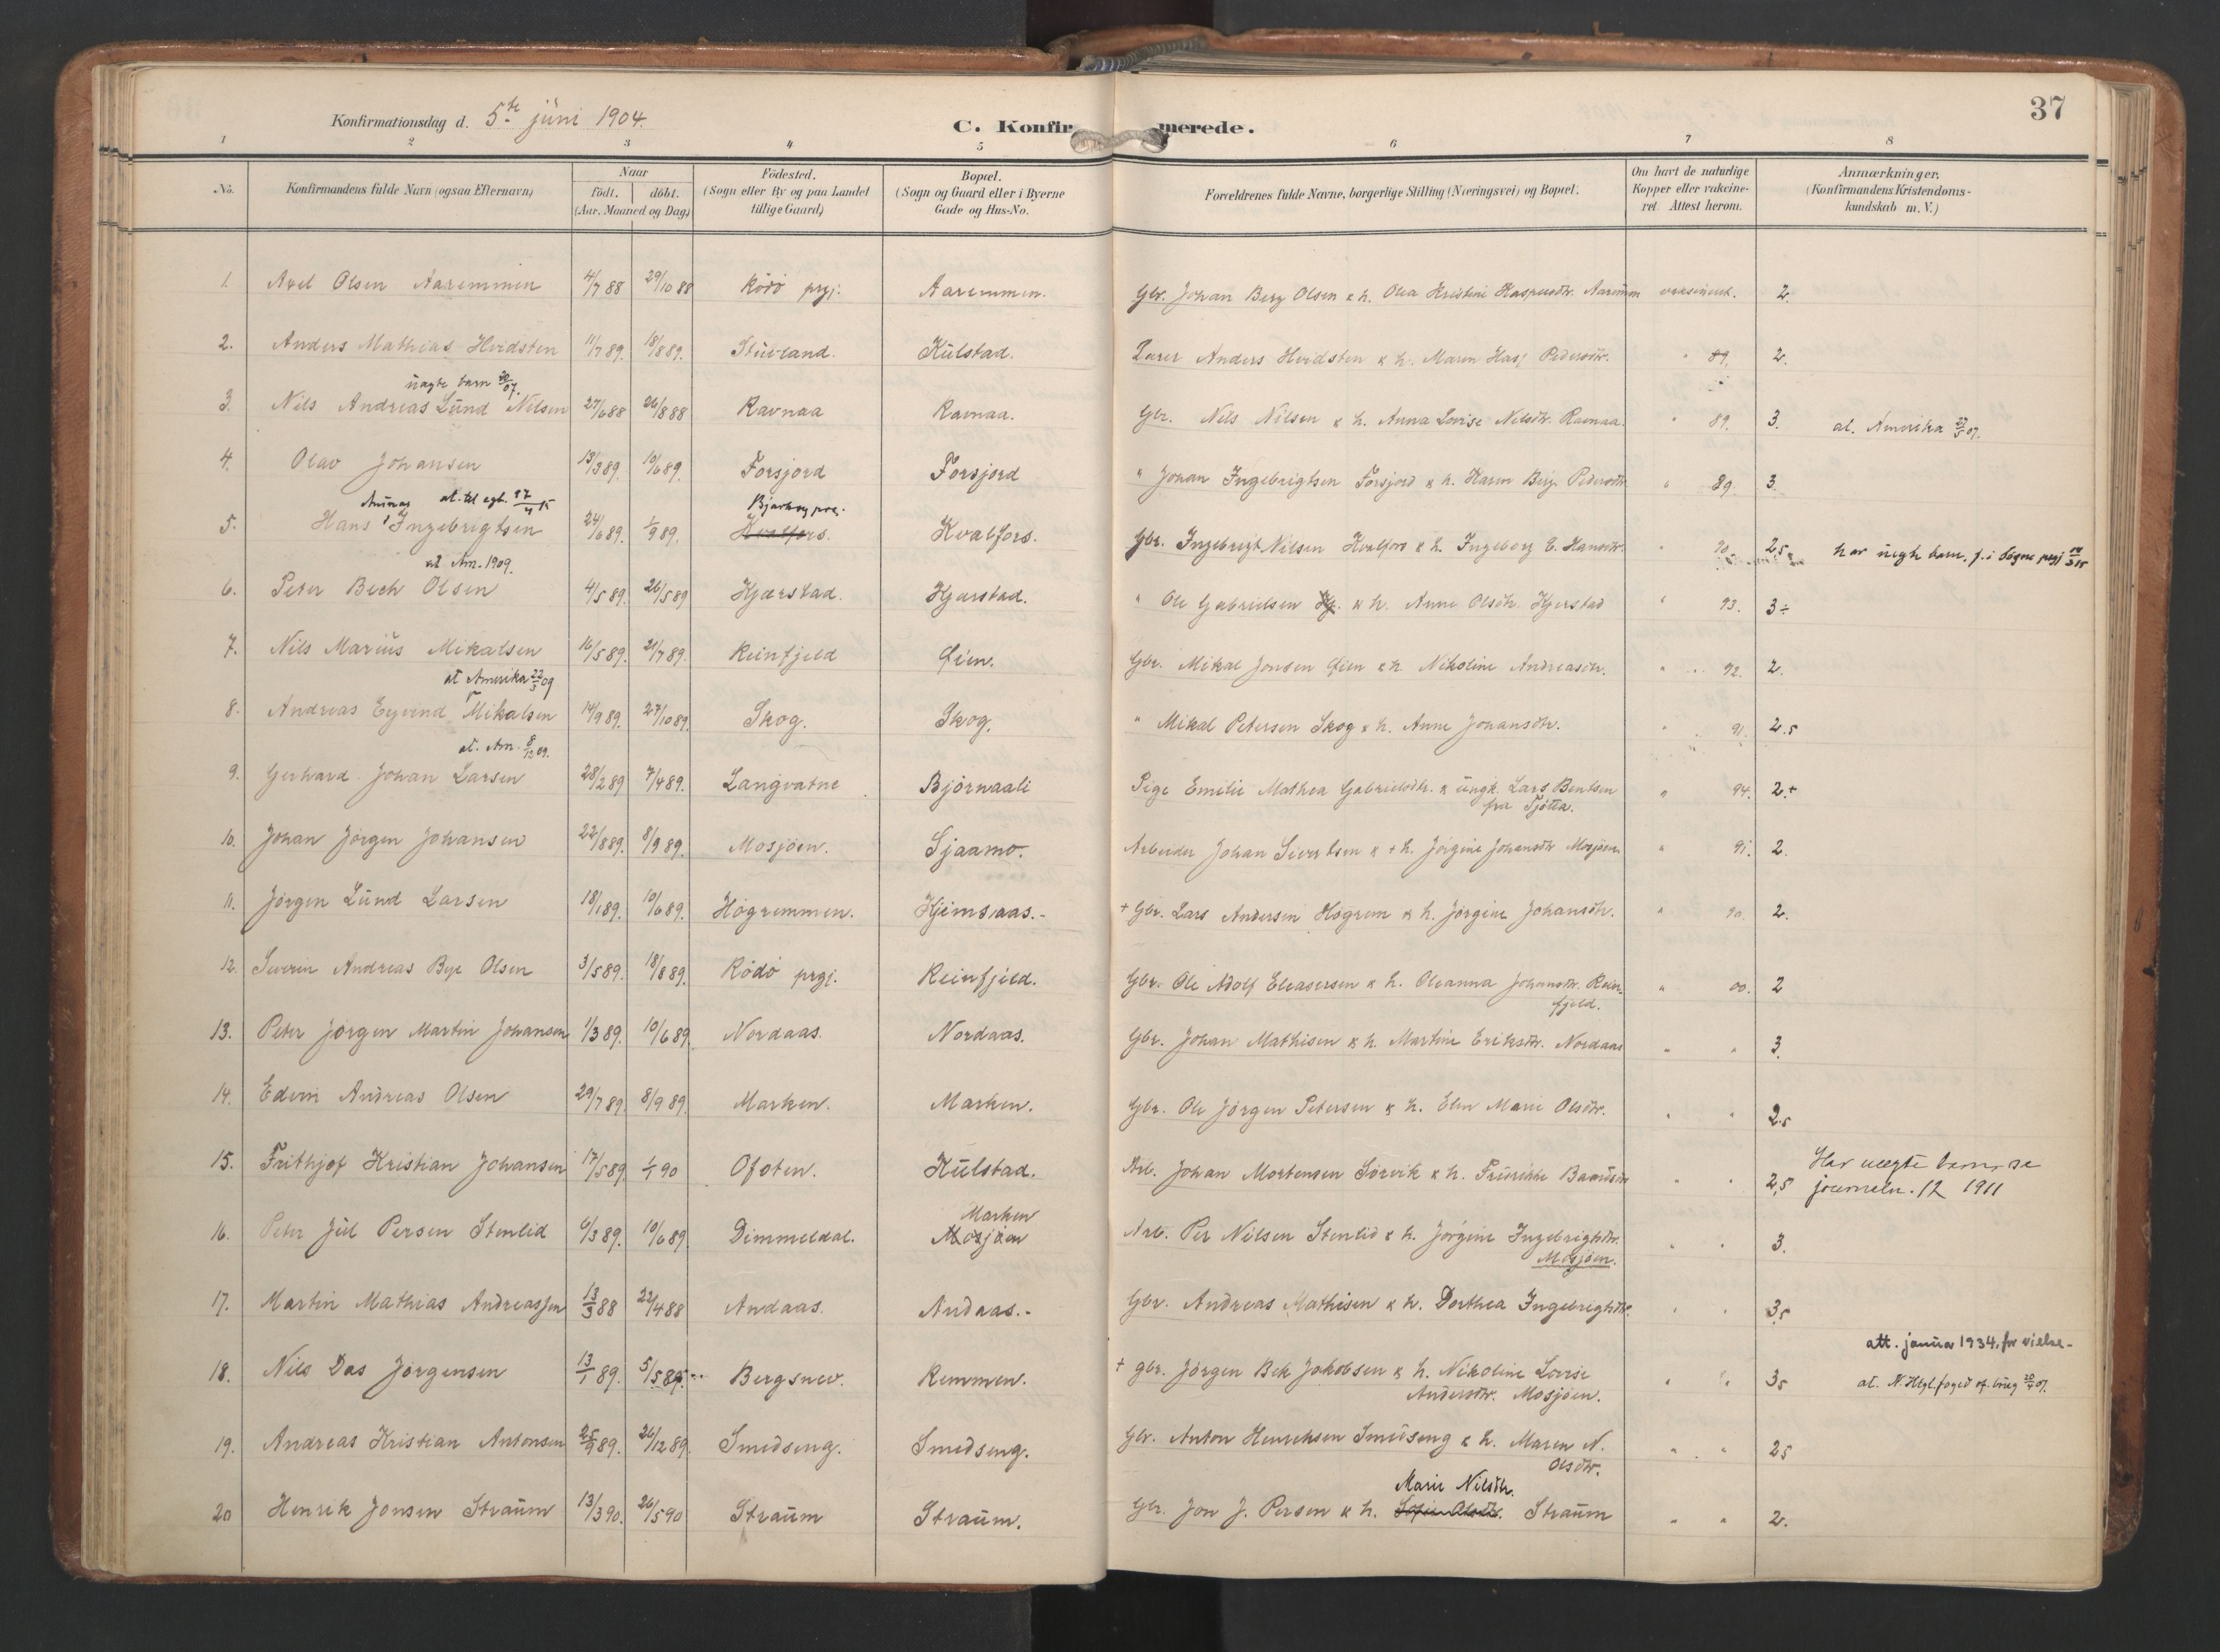 37
Konfirmationsdag d. 5te juni 1904.
C. Konfirmerede.
1 2 3 4 5 6 7 8
No.
Konfirmandens fulde Navn (ogsaa Efternavn)
Naar
födt. döbt.
(Aar. Maaned og Dag)
Födested.
(Sogn eller By og paa Landet
tillige Gaard)
Bopæl.
(Sogn og Gaard eller i Byerne
Gade og Hus-No.
Forældrenes fulde Navne, borgerlige Stilling (Næringsvei) og Bopæl.
Om havt de naturlige
Kopper eller vakcine-
ret. Attest herom.
Anmærkninger.
(Konfirmandens Kristendoms-
kundskab m. V.)
1. Axel Olsen Aaremmen 4/7 88 29/10 88 Rödö prgj. Aaremmen. Gbr. Johan Berg Olsen & h. Olea Kristine Kaspersdtr. vaksinert. 2.
2. Anders Mathias Hvidsten 11/7 89. 18/8 89. Stuvland. Kulstad. Lærer Anders Hvidsten & h. Maren Pedersdtr. " 89. 2.
uægte barn 07.
3. Nils Andreas Lund Nilsen 27/6 88 26/8 88 Ravnaa Ravnaa. Gbr. Nils Nilsen & h. Anna Lovise Nilsdtr. Ravnaa. " 89. 3. at. Amerika 07.
4. Olav Johansen 13/3 89. 10/6 89. Forsjord Forsjord " Johan Ingebrigtsen Forsjord & h. Karen Berg. Pedersdtr. " 89. 3.
at. til egt. 15
Bjarkøy prg.
5. Hans Ingebrigtsen 24/6 89. 1/9 89. Kvalfors. Kvalfors. Gbr. Ingebrigt Nilsen Kvalfors & h. Ingeborg E. Hansdtr. " 90. 2.5 har uegte barn, f. i prgj 15
at Am. 1909.
6. Peter Bech Olsen 4/5 89. 26/5 89 Kjærstad. Kjærstad. " Ole Gabrielsen Kj. & h. Anne Olsdtr. Kjerstad " 93. 3÷
7. Nils Marius Mikalsen 16/5 89. 21/7 89. Reinfjeld Øien. Gbr. Mikal Jonsen Øien & h. Nikoline Andreasdtr. " 92. 2.
at Amerika 22/3 09
8. Andreas Eyvind Mikalsen 14/9 89. 27/10 89. Skog. Skog. " Mikal Petersen Skog & h. Anne Johansdtr. " 91. 2.5
at. Am. 8/12 09.
9. Gerhard Johan Larsen 28/2 89 7/4 89. Langvatne Björnaali Pige Emilie Mathea Gabrielsdtr. & ungk. Lars Bentsen " 94. 2.+
fra Tjötta.
10. Johan Jörgen Johansen 22/8 89. 8/9 89. Mosjöen. Sjaamo. Arbeider Johan Sivertsen & + h. Jörgine Johansdtr Mosjöen " 91. 2.
11. Jörgen Lund Larsen 18/1 89. 10/6 89. Högremmen. Kjemsaas.- + Gbr. Lars Andersen Högrem & h. Jörgine Johansdtr. " 90. 2.
12. Severin Andreas Bye Olsen 3/5 89. 18/8 89. Rödö prgj. Reinfjeld. Gbr. Ole Adolf Eleasersen & h. Oleanna Johansdtr. Rein- " 00. 2
fjeld.
13. Peter Jörgen Martin Johansen 1/3 89. 10/6 89 Nordaas. Nordaas. Gbr. Johan Mathisen & h. Martine Eriksdtr. Nordaas " " 3.
14. Edvin Andreas Olsen 29/7 89. 8/9 89. Marken. Marken. Gbr. Ole Jörgen Petersen & h. Elen Marie Olsdtr. " " 2.5
15. Frithjof Kristian Johansen 17/5 89. 1/1 90 Ofoten. Kulstad. Arb. Johan Mortensen Sörvik & h. Fredrikke " " 2,5 Har uegte barn, se
journaln. 12 1911
Marken
16. Peter Jul Persen Stenlid 6/3 89. 10/6 89. Dimmeldal. Mosjöen Arb. Per Nilsen Stenlid & h. Jörgine Ingebrigtsdtr. " " 3.
Mosjöen.
17. Martin Mathias Andreassen 13/3 88 22/4 88 Andaas. Andaas.- Gbr. Andreas Mathisen & h. Dorthea Ingebrigtsdtr. " " 3,5
att. januar 1934, for vielse.
18. Nils Das Jörgensen 13/1 89. 5/5 89. Bergsnev. Remmen. + gbr. Jörgen Bek Jakobsen & h. Nikoline Lovise " " 3,5 at. N. Helgl. foged 07.
Andersdtr. Mosjöen.
19. Andreas Kristian Antonsen 25/9 89. 26/12 89. Smedseng. Smedseng. Gbr. Anton Henriksen Smedseng & h. Maren N. " " 2,5
Olsdtr.
Marie Nilsdtr.
20 Henrik Jonsen Straum 13/3 90. 26/5 90 Straum Straum. Gbr. Jon J. Persen & h. Sofie Olsdtr. Straum " " 2.